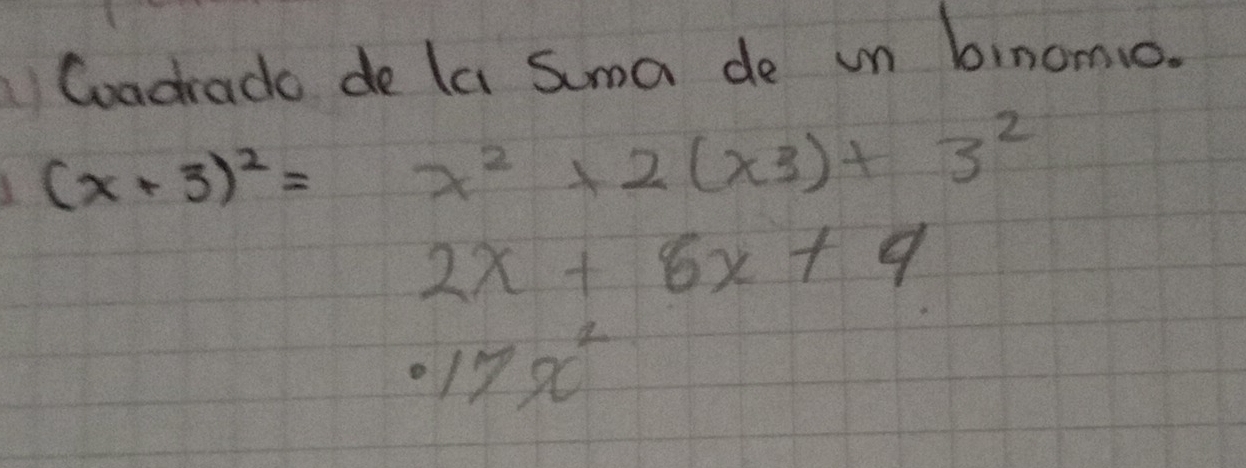 Cuadrado de la Suma de un binomio.
(x + 3)² = x² + 2(x3) + 3²
2x + 6x + 9
.17x²